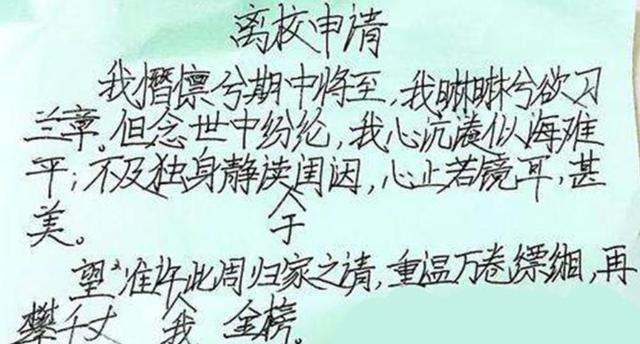 离校申请
我憯懔兮期中将至,我啉啉兮欲习
兰章。但念世中纷纶,我心沉漭似海难
平;不及独身静渎于闺因,心止若镜耳,甚
美。
望准许我此周归家之请,重温万卷缥缃,再
攀千丈金榜。